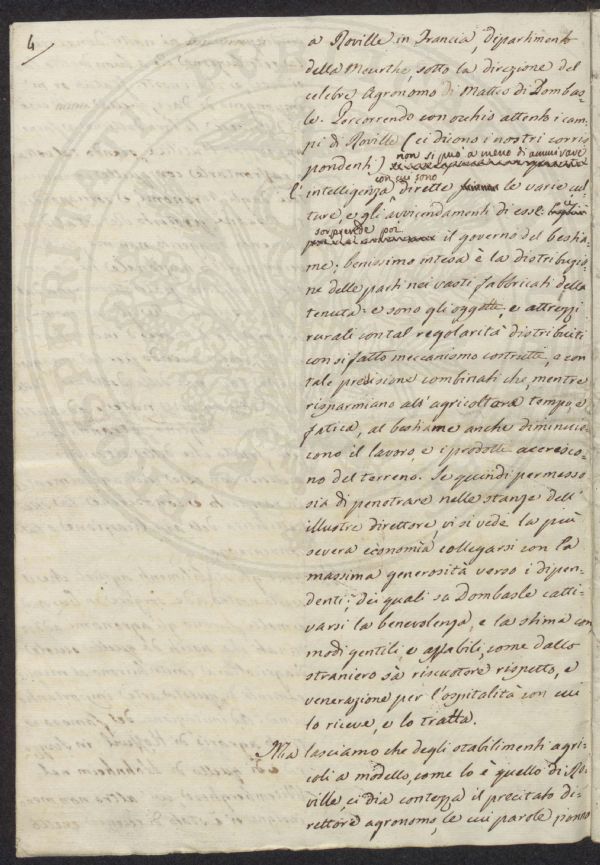 4
a Roville in Francia, dipartimento
della Meurthe, sotto la direzione del
celebre Agronomo di Matteo di Dombas-
le. Percorrendo con occhio attento i cam-
pi di Roville (ci dicono i nostri corris-
pondenti) non si può a meno di ammirare
con cui sono
l'intelligenza dirette le varie cul-
ture, e gli avvicendamenti di esse:
sorprende poi
il governo del bestia-
me; benissimo intesa è la distribuzio-
ne delle parti nei vasti fabbricati della
tenuta: e sono gli oggetti, e attrezzi
rurali con tal regolarità distribuiti
con sì fatto meccanismo costrutti, e con
tale precisione combinati che, mentre
risparmiano all'agricoltore tempo, e
fatica, al bestiame anche diminuis-
cono il lavoro, e i prodotti accresco-
no del terreno. Se quindi permesso
sia di penetrare nelle stanze dell'
illustre direttore, vi si vede la più
severa economia collegarsi con la
massima generosità verso i dipen-
denti, dei quali sa Dombasle catti-
varsi la benevolenza, e la stima con
modi gentili, e affabili, come dallo
straniero sà riscuotere rispetto, e
venerazione per l'ospitalità con cui
lo riceve, e lo tratta.
Ma lasciamo che degli stabilimenti agri-
coli a modello, come lo è quello di Ro-
ville, ci dia contezza il precitato di-
rettore agronomo, le cui parole ponno